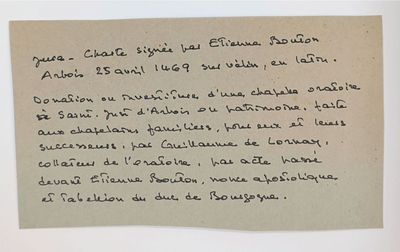 Jura - Charte signée par Etienne Bouton
Arbois 25 avril 1469 sur vélin, en latin.
Donation ou investiture d'une chapelle oratoire
de Saint-Just d'Arbois ou patrimoine, faite
aux chapelains familiers, pour eux et leurs
successeurs, par Guillaume de Lornay,
collateur de l'oratoire, par acte passé
devant Etienne Bouton, nonce apostolique
et tabellion du duc de Bourgogne.